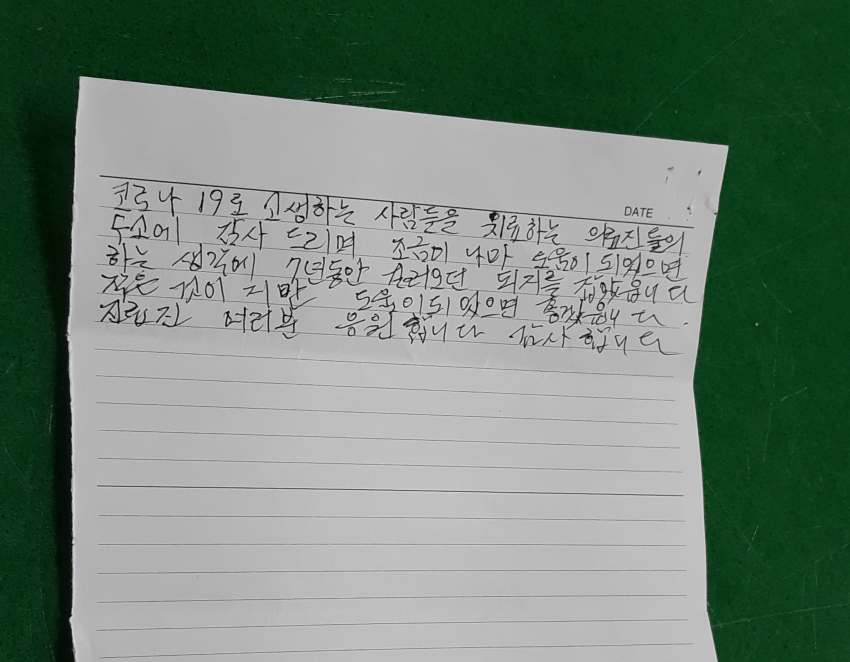 DATE
코로나 19로 고생하는 사람들을 치료하는 의료진들의
수고에 감사 드리며 조금이 나마 도움이 되었으면
하는 생각에 7년동안 키려오던 되지를 잡았읍니다
작은 것이 지만 도움이되었으면 좋겠읍니다.
의료진 여러분 응원 합니다 감사 합니다